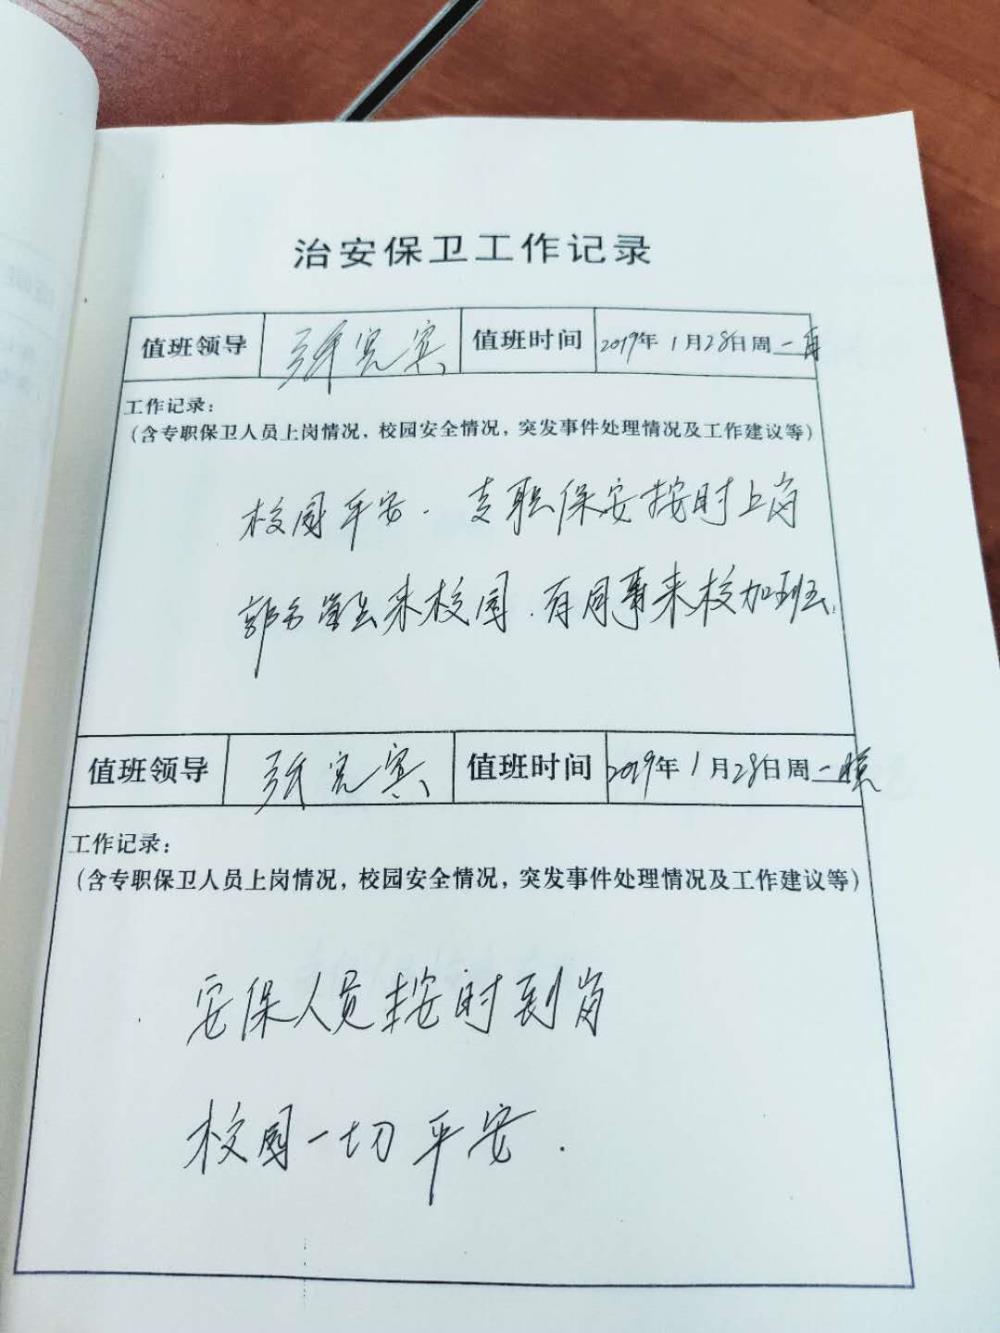 治安保卫工作记录
值班领导 张宪宾 值班时间 2019年1月28日周一
工作记录：
（含专职保卫人员上岗情况，校园安全情况，突发事件处理情况及工作建议等）
校园平安. 专职保安按时上岗
来校园.有同事来校加班.
值班领导 张宪宾 值班时间 2019年1月28日周一晚
工作记录：
（含专职保卫人员上岗情况，校园安全情况，突发事件处理情况及工作建议等）
安保人员按时到岗
校园一切平安.